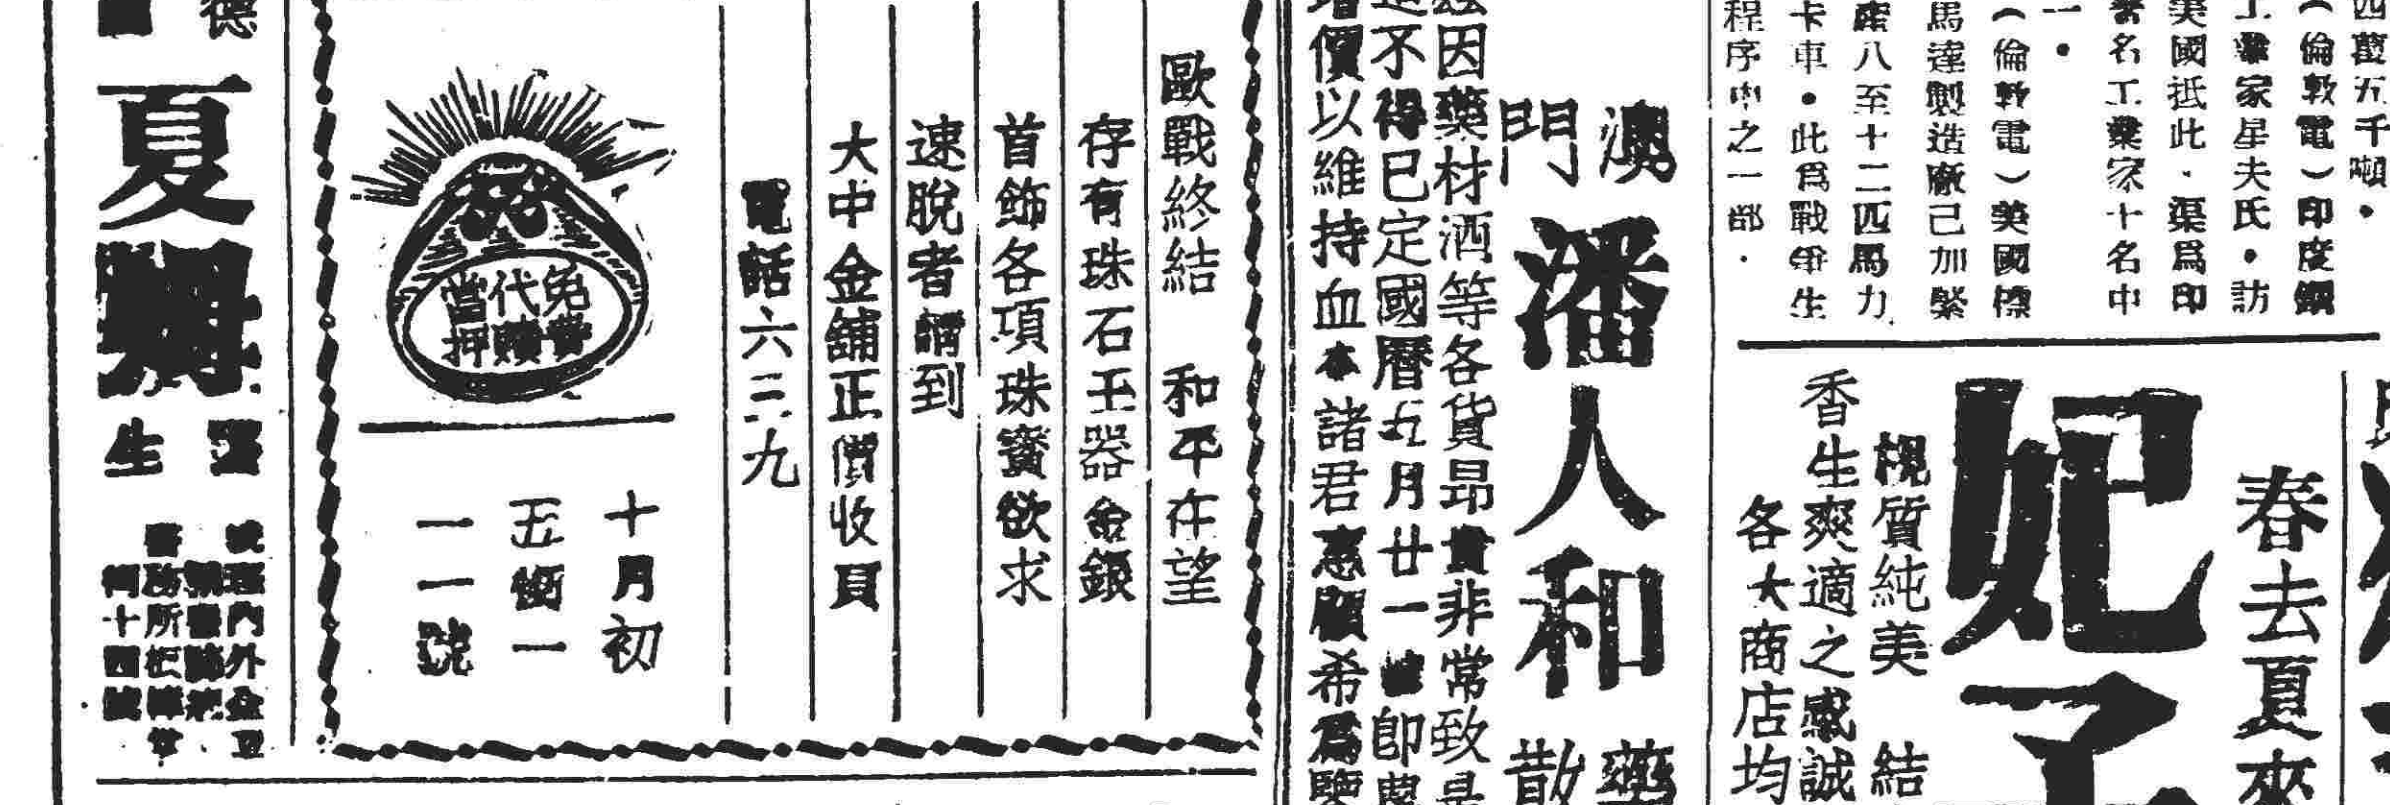 四萬五千噸．
（倫敦電）印度鋼
工業家星夫氏．訪
美國抵此．渠爲印
著名工業家十名中
一．
（倫敦電）英國標
馬達製造廠已加緊
產八至十二匹馬力
卡車．此爲戰爭生
程序中之一部．
春去夏來
妃子
槻質純美　結
香生爽適之感誠
各大商店均
澳門
潘人和
藥散
因藥材洒等各貨昂貴非常致是
不得已定國曆五月廿一號即農
增價以維持血本諸君惠顧希爲鑒
歐戰終結　和平在望
存有珠石玉器金銀
首飾各項珠寶欲求
速脫者請到
大中金舖正價收買
電話六三九
免費
代贖
當押
十月初
五街一
一一號
德
夏
生